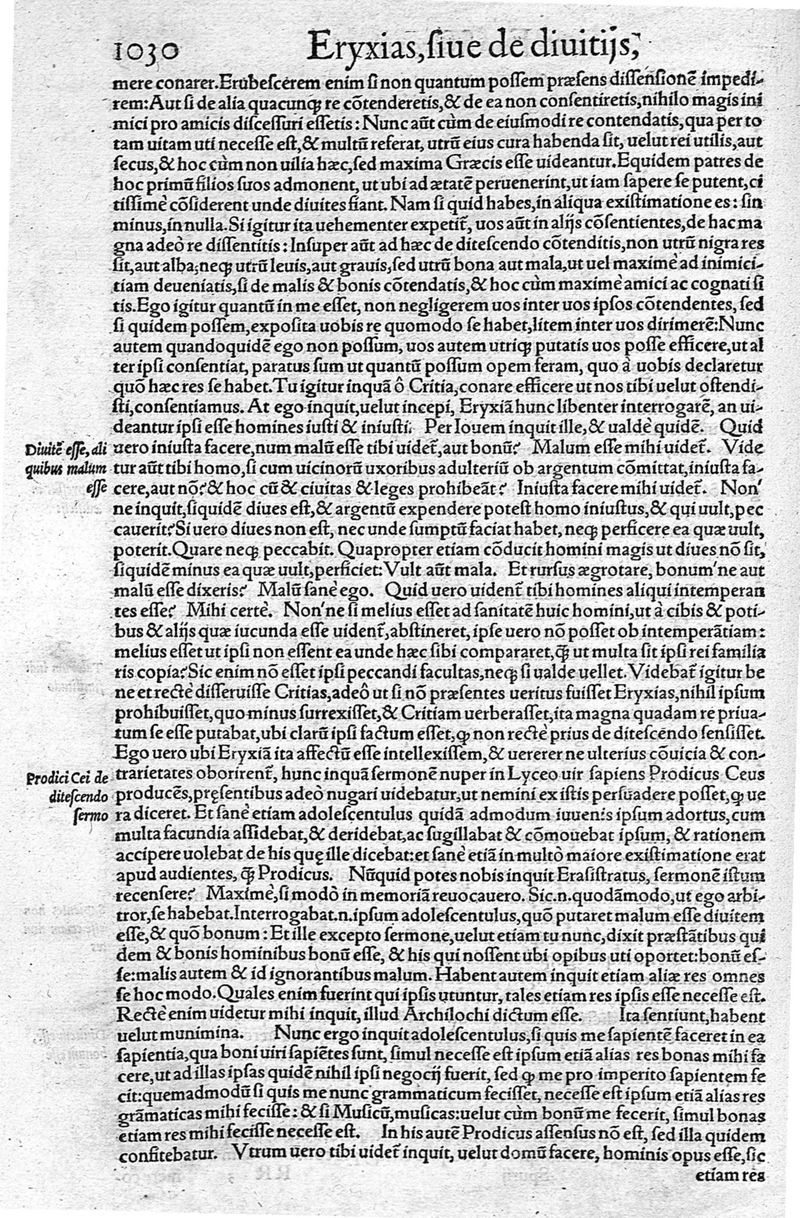 1030 Eryxias, siue de diuitijs,
mere conarer. Erubescerem enim si non quantum possem præsens dissensionẽ impedi-
rem: Aut si de alia quacunq; re cõtenderetis, & de ea non consentiretis, nihilo magis ini
mici pro amicis discessuri essetis: Nunc aũt cùm de eiusmodi re contendatis, qua per to
tam uitam uti necesse est, & multũ referat, utrũ eius cura habenda sit, uelut rei utilis, aut
secus, & hoc cùm non uilia hæc, sed maxima Græcis esse uideantur. Equidem patres de
hoc primũ filios suos admonent, ut ubi ad ætatẽ peruenerint, ut iam sapere se putent, ci
tissimè cõsiderent unde diuites fiant. Nam si quid habes, in aliqua existimatione es: sin
minus, in nulla. Si igitur ita uehementer expetit̃, uos aũt in alijs cõsentientes, de hac ma
gna adeò re dissentitis: Insuper aũt ad hæc de ditescendo cõtenditis, non utrũ nigra res
sit, aut alba; neq; utrũ leuis, aut grauis, sed utrũ bona aut mala, ut uel maximè ad inimici-
tiam deueniatis, si de malis & bonis cõtendatis, & hoc cùm maximè amici ac cognati si
tis. Ego igitur quantũ in me esset, non negligerem uos inter uos ipsos cõtendentes, sed
si quidem possem, exposita uobis re quomodo se habet, litem inter uos dirimerẽ: Nunc
autem quandoquidẽ ego non possum, uos autem utriq; putatis uos posse efficere, ut al
ter ipsi consentiat, paratus sum ut quantũ possum opem feram, quo à uobis declaretur
quõ hæc res se habet. Tu igitur inquã ô Critia, conare efficere ut nos tibi uelut ostendi-
sti, consentiamus. At ego inquit, uelut incepi, Eryxiã hunc libenter interrogarẽ, an ui-
deantur ipsi esse homines iusti & iniusti. Per Iouem inquit ille, & ualdè quidẽ. Quid
Diuitẽ esse, ali
quibus malum
esse
uero iniusta facere, num malũ esse tibi uidet̃, aut bonũ? Malum esse mihi uidet̃. Vide
tur aũt tibi homo, si cum uicinorũ uxoribus adulteriũ ob argentum cõmittat, iniusta fa-
cere, aut nõ? & hoc cũ & ciuitas & leges prohibeãt? Iniusta facere mihi uidet̃. Non'
ne inquit, siquidẽ diues est, & argentũ expendere potest homo iniustus, & qui uult, pec
cauerit? Si uero diues non est, nec unde sumptũ faciat habet, neq; perficere ea quæ uult,
poterit. Quare neq; peccabit. Quapropter etiam cõducit homini magis ut diues nõ sit,
siquidẽ minus ea quæ uult, perficiet: Vult aũt mala. Et rursus ægrotare, bonum'ne aut
malũ esse dixeris? Malũ sanè ego. Quid uero uident̃ tibi homines aliqui intemperan
tes esse? Mihi certè. Non'ne si melius esset ad sanitatẽ huic homini, ut à cibis & poti-
bus & alijs quæ iucunda esse uident̃, abstineret, ipse uero nõ posset ob intemperãtiam:
melius esset ut ipsi non essent ea unde hæc sibi compararet, q̃ ut multa sit ipsi rei familia
ris copia? Sic enim nõ esset ipsi peccandi facultas, neq; si ualde uellet. Videbat̃ igitur be
ne et rectè disseruisse Critias, adeô ut si nõ præsentes ueritus fuisset Eryxias, nihil ipsum
prohibuisset, quo minus surrexisset, & Critiam uerberasset, ita magna quadam re priua-
tum se esse putabat, ubi clarũ ipsi factum esset, ꝙ non rectè prius de ditescendo sensisset.
Ego uero ubi Eryxiã ita affectũ esse intellexissem, & uererer ne ulterius cõuicia & con-
Prodici Cei de
ditescendo
sermo
trarietates oborirent̃, hunc inquã sermonẽ nuper in Lyceo uir sapiens Prodicus Ceus
producẽs, pręsentibus adeò nugari uidebatur, ut nemini ex istis persuadere posset, ꝙ ue
ra diceret. Et sanè etiam adolescentulus quidã admodum iuuenis ipsum adortus, cum
multa facundia assidebat, & deridebat, ac sugillabat & cõmouebat ipsum, & rationem
accipere uolebat de his quę ille dicebat: et sanè etiã in multò maiore existimatione erat
apud audientes, q̃ Prodicus. Nũquid potes nobis inquit Erasistratus, sermonẽ istum
recensere? Maximè, si modò in memoriã reuocauero. Sic.n. quodãmodo, ut ego arbi-
tror, se habebat. Interrogabat.n. ipsum adolescentulus, quõ putaret malum esse diuitem
esse, & quõ bonum: Et ille excepto sermone, uelut etiam tu nunc, dixit præstãtibus qui
dem & bonis hominibus bonũ esse, & his qui nossent ubi opibus uti oportet: bonũ es-
se: malis autem & id ignorantibus malum. Habent autem inquit etiam aliæ res omnes
se hoc modo. Quales enim fuerint qui ipsis utuntur, tales etiam res ipsis esse necesse est.
Rectè enim uidetur mihi inquit, illud Archilochi dictum esse. Ita sentiunt, habent
uelut munimina. Nunc ergo inquit adolescentulus, si quis me sapientẽ faceret in ea
sapientia, qua boni uiri sapiẽtes sunt, simul necesse est ipsum etiã alias res bonas mihi fa
cere, ut ad illas ipsas quidẽ nihil ipsi negocij fuerit, sed ꝙ me pro imperito sapientem fe
cit: quemadmodũ si quis me nunc grammaticum fecisset, necesse est ipsum etiã alias res
grãmaticas mihi fecisse: & si Musicũ, musicas: uelut cùm bonũ me fecerit, simul bonas
etiam res mihi fecisse necesse est. In his autẽ Prodicus assensus nõ est, sed illa quidem
confitebatur. Vtrum uero tibi uidet̃ inquit, uelut domũ facere, hominis opus esse, sic
etiam res